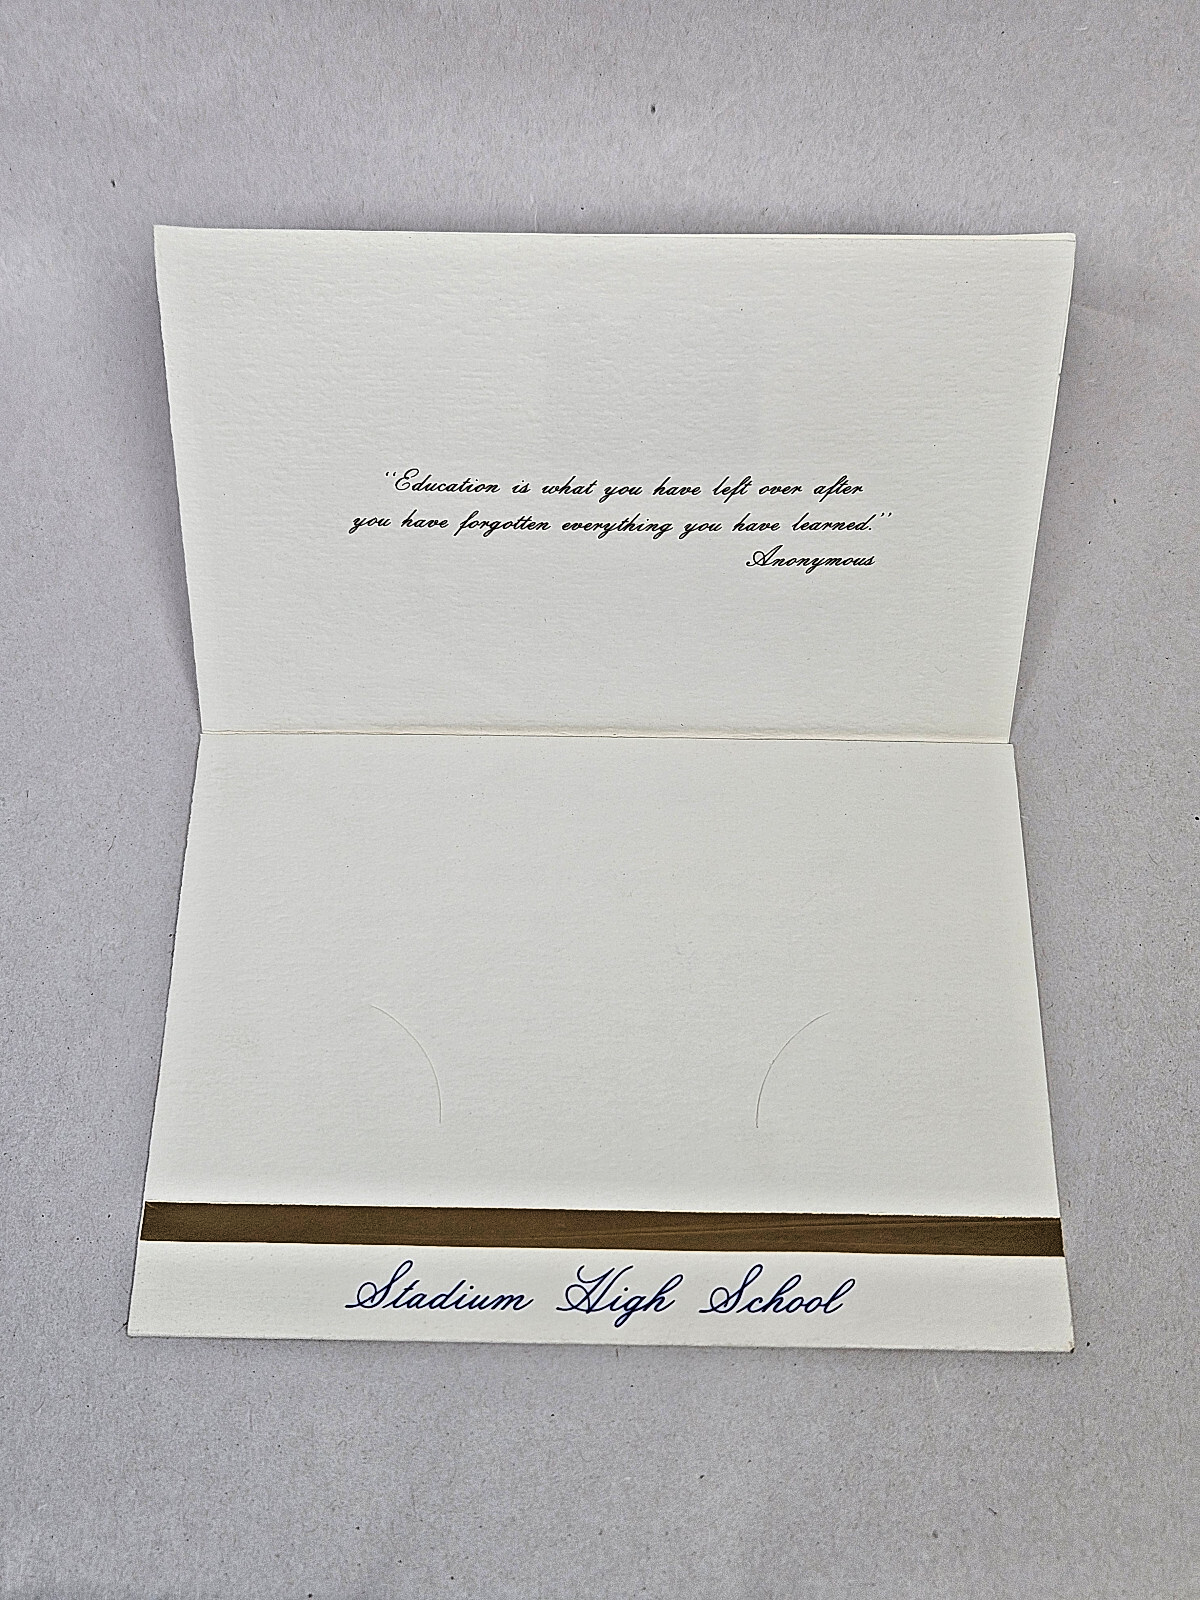 “Education is what you have left over after
you have forgotten everything you have learned.”
Anonymous
Stadium High School